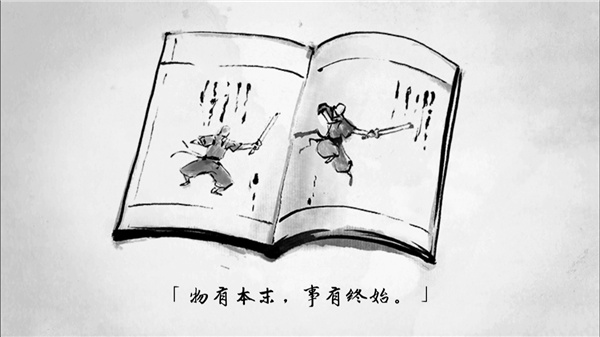 「物有本末，事有终始。」